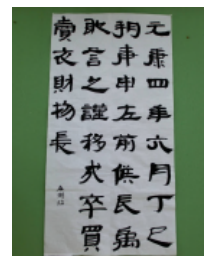 元康四年六月丁巳
朔庚申左前候長禹
敢言之謹移戍卒買
賣衣財物長